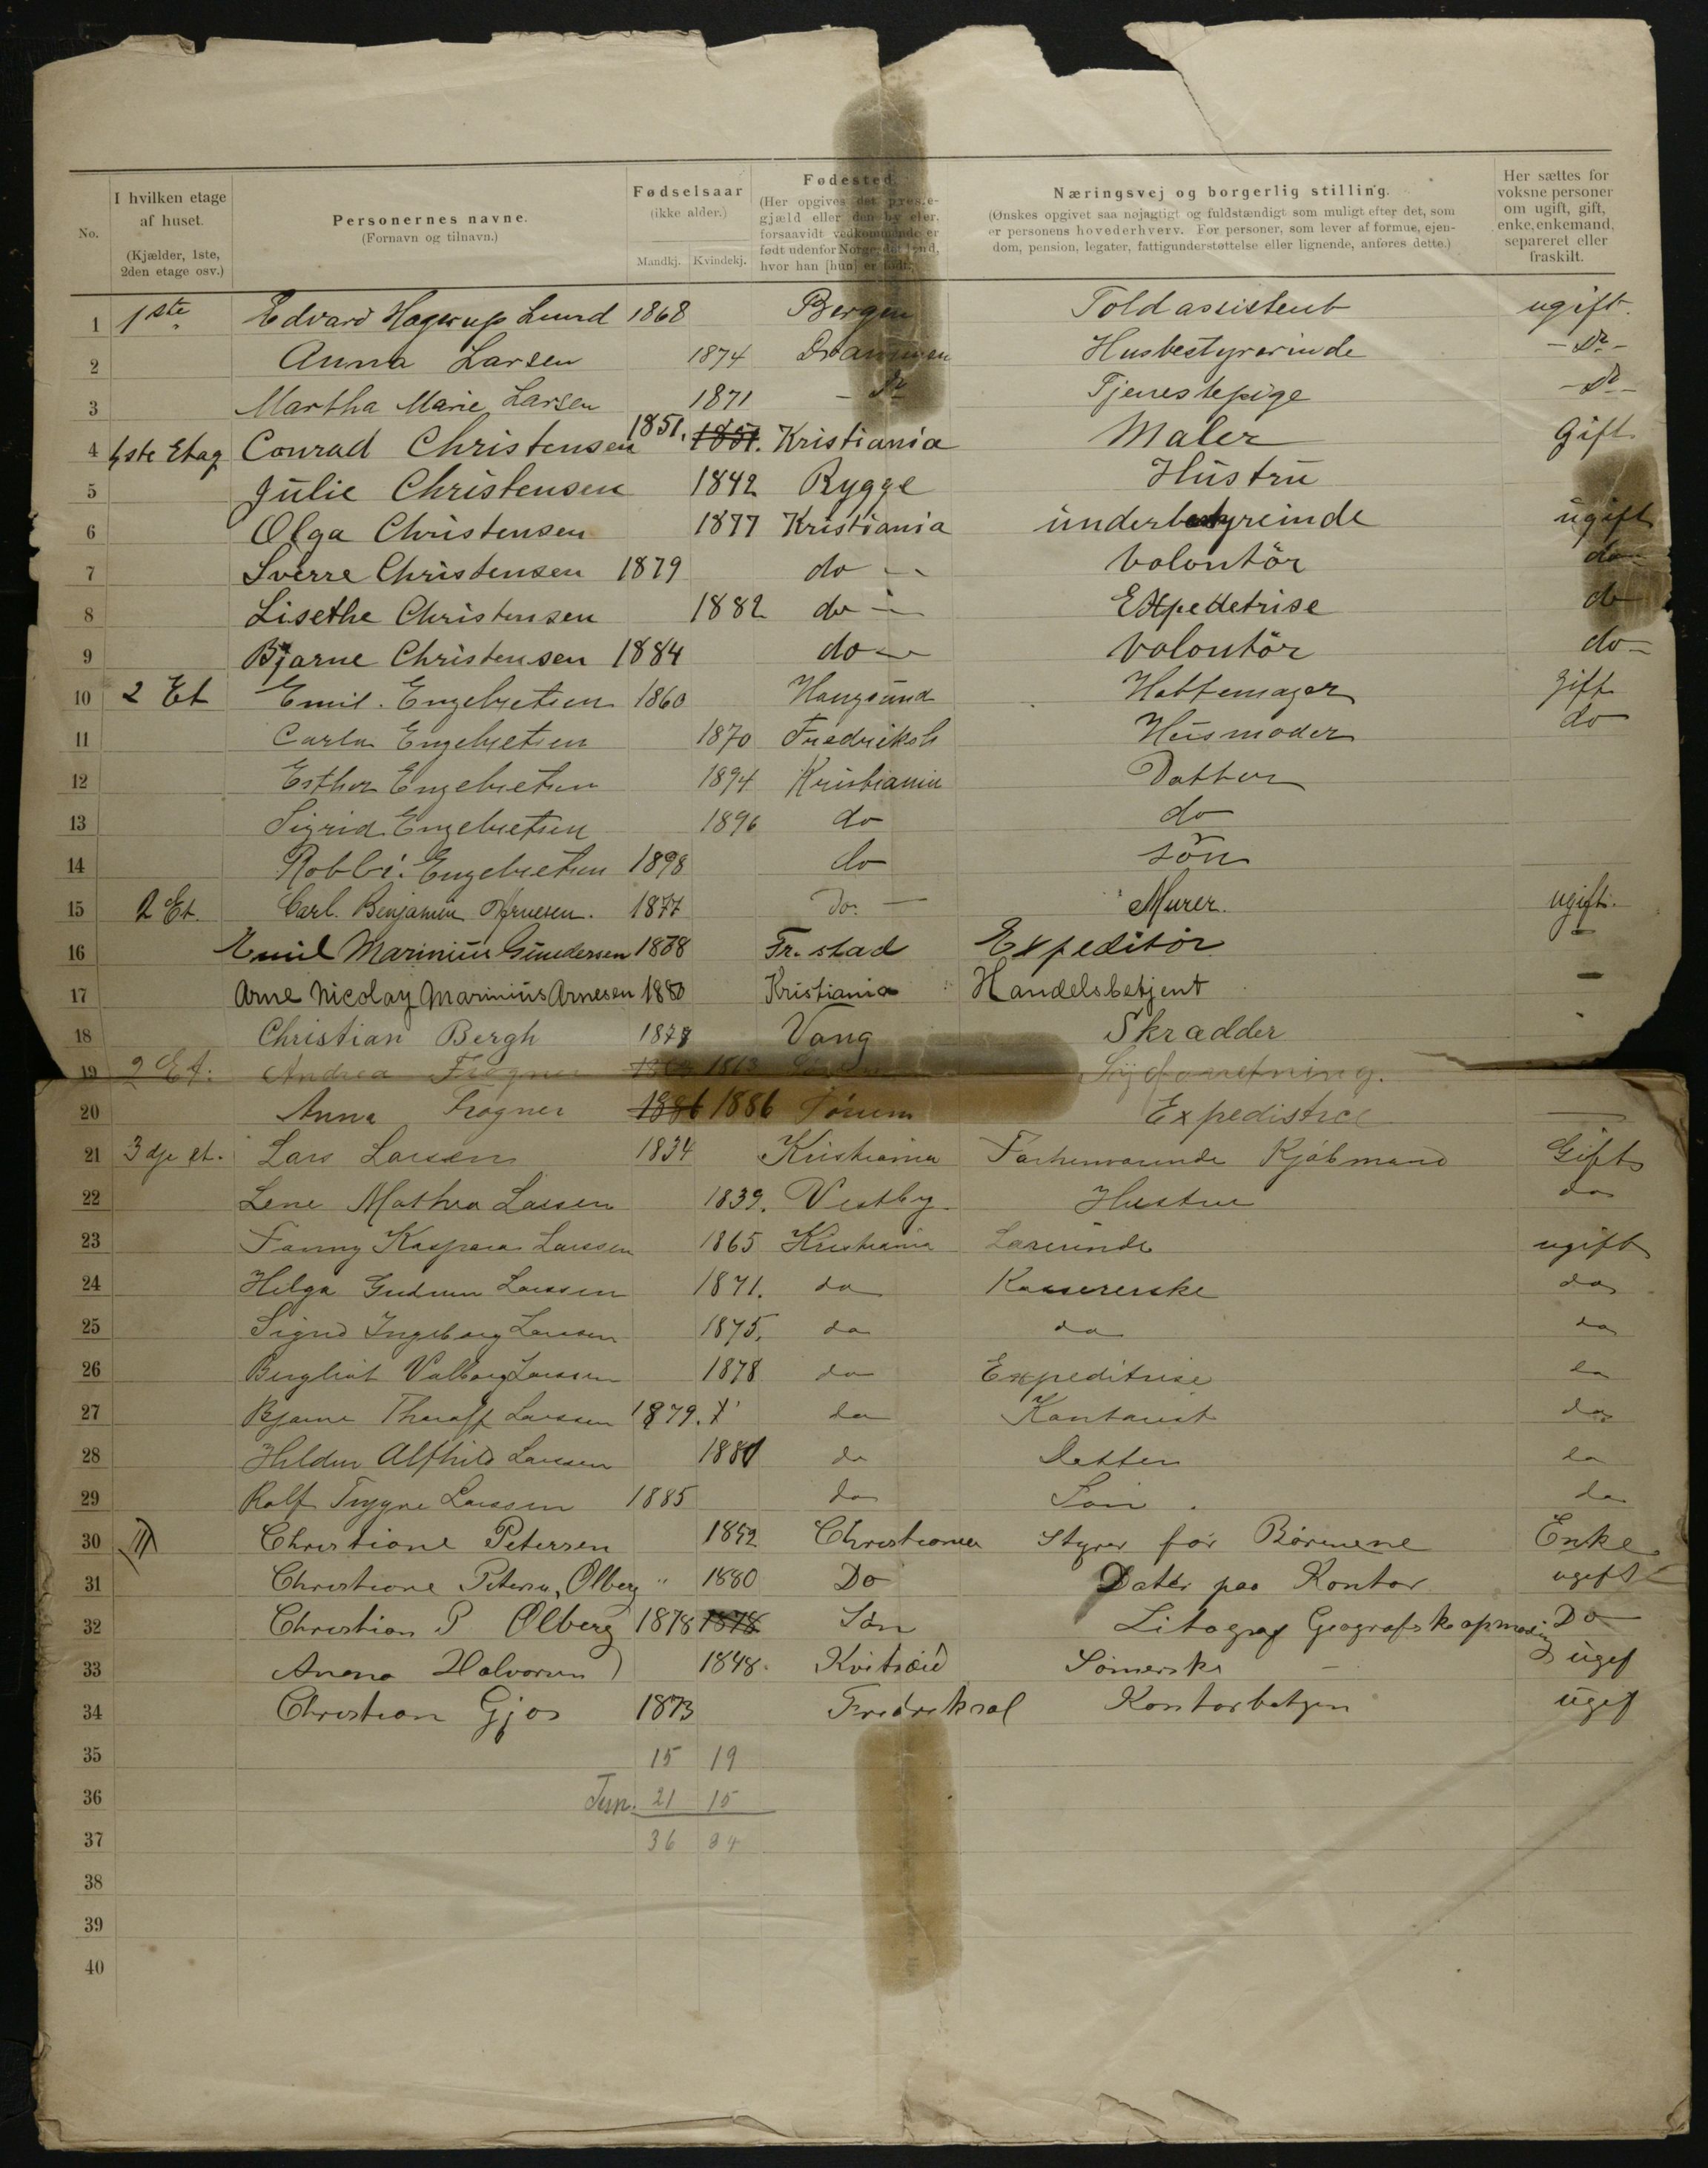 No. I hvilken etage af huset. (Kjælder, 1ste, 2den etage osv.) Personernes navne. (Fornavn og tilnavn.) Fødselsaar (ikke alder.) Mandkj. Kvindekj. Fødested. (Her opgives det præste-gjæld eller den by eler, forsaavidt vedkommende er født udenfor Norge, det land, hvor han [hun] er født.) Næringsvej og borgerlig stilling. (Ønskes opgivet saa nøjagtigt og fuldstændigt som muligt efter det, som er personens hovederhverv. For personer, som lever af formue, ejen-dom, pension, legater, fattigunderstøttelse eller lignende, anføres dette.) Her sættes for voksne personer om ugift, gift, enke, enkemand, separeret eller fraskilt.
1 1ste Edvard Hagerup Lund 1868 Bergen Toldassistent ugift.
2 Anna Larsen 1874 Drammen Husbestyrerinde - Do -
3 Martha Marie Larsen 1871 - Do Tjenestepige - Do -
4 1ste Etag Conrad Christensen 1851. 1851. Kristiania Maler Gift
5 Julie Christensen 1842 Rygge Hustru
6 Olga Christensen 1877 Kristiania underbestyreinde ugift
7 Sverre Christensen 1879 do - volontör do -
8 Lisethe Christensen 1882 do - Expeditrise do
9 Bjarne Christensen 1884 do - volontör do -
10 2 Et Emil. Engebretsen 1860 Haugsund Hattemager gift
11 Carla Engebretsen 1870 Fredriksh Husmoder do
12 Esther Engebretsen 1894 Kristiania Datter
13 Sigrid Engebretsen 1896 do do
14 Robbi. Engebretsen 1898 do sön
15 2 Et. Carl. Benjamin Arnesen. 1877 Do. - Murer. ugift.
16 Emil Marinius Gundersen 1878 Fr. stad Expeditör -
17 Arne Nicolay Marinius Arnesen 1880 Kristiania Handelsbetjent -
18 Christian Bergh 1878 Vang Skrædder
19 2 Et. Andrea Frogner 1863 Syforretning.
20 Anna Frogner 1886 1886 Sörum Expeditrice
21 3dje et. Lars Larsen 1834 Kristiania Forhenværende Kjøbmand Gift
22 Lene Mathea Larssen 1839. Vestby Hustru do
23 Fanny Kaspara Larssen 1865 Kristiania Lærerinde ugift
24 Helga Gudrun Larssen 1871. do Kassererske do
25 Sigrid Ingeborg Larssen 1875. do do do
26 Bergliot Valborg Larssen 1878 do Expeditrise do
27 Bjarne Thoralf Larssen 1879. do Kontorist do
28 Hildur Alfhild Larssen 1881 do Datter do
29 Rolf Trygve Larssen 1885 do Søn. do
30 III Christiane Petersen 1852 Christiania Styrer for Børnene Enke
31 Christiane Peters., Olberg " 1880 Do Dater paa Kontor ugift
32 Christian P Olberg 1878 1878 Søn Litograf Geografsk opmaaling Do
33 Anena Halvorsen 1848. Kvitseid Sømerske - ugif
34 Christian Gjøs 1873 Fredrikshal Kontorbetjen ugif
35 15 19
36 Tun. 21 15
37 36 34
38
39
40